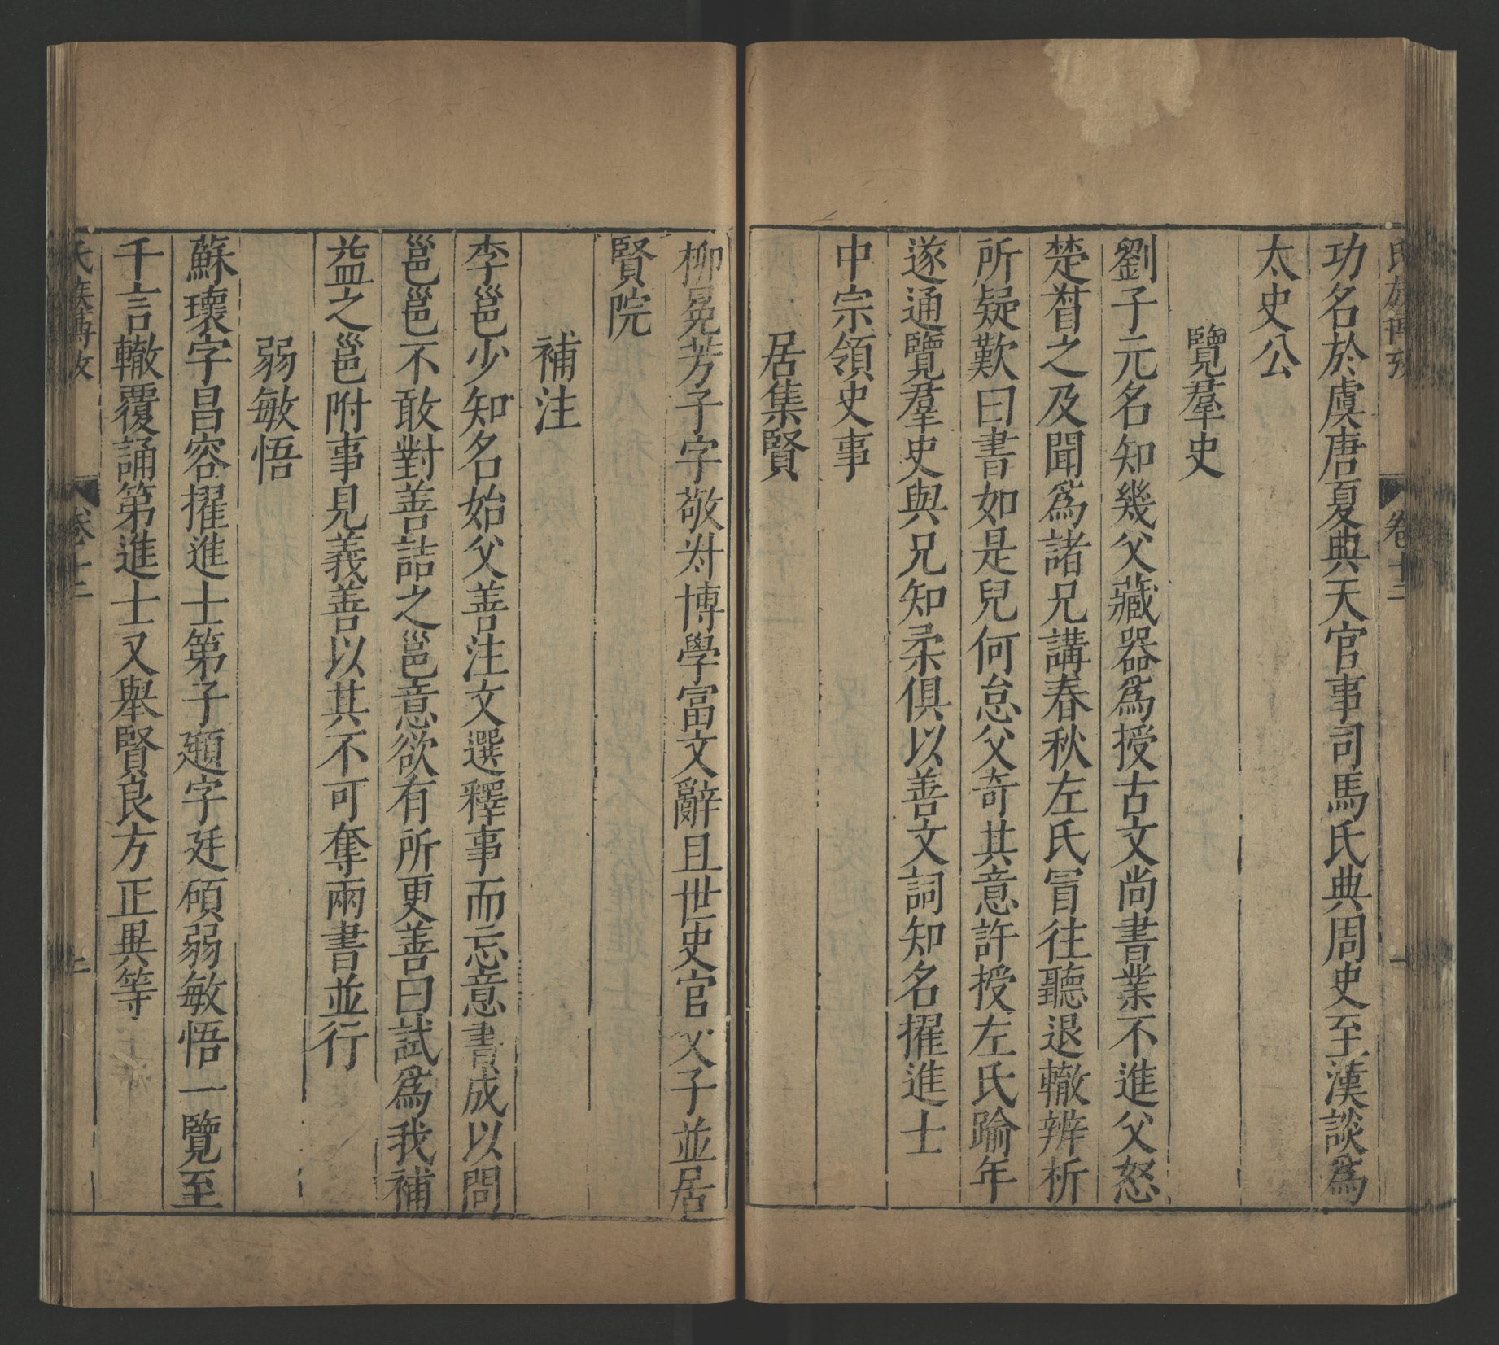 氏族博攷 卷十二
功名於虞唐夏典天官事司馬氏典周史至漢談爲
太史公
覽羣史
劉子元名知幾父藏器爲授古文尚書業不進父怒
楚督之及聞爲諸兄講春秋左氏冒往聽退輙辨析
所疑歎曰書如是兒何怠父奇其意許授左氏踰年
遂通覽羣史與兄知柔俱以善文詞知名擢進士
中宗領史事
居集賢
柳冕芳子字敬叔博學富文辭且世史官父子並居
賢院
補注
李邕少知名始父善注文選釋事而忘意書成以問
邕邕不敢對善詰之邕意欲有所更善曰試爲我補
益之邕附事見義善以其不可奪兩書並行
弱敏悟
蘇瓌字昌容擢進士第子頲字廷碩弱敏悟一覽至
千言輙覆誦第進士又舉賢良方正異等
氏族博攷 卷十二